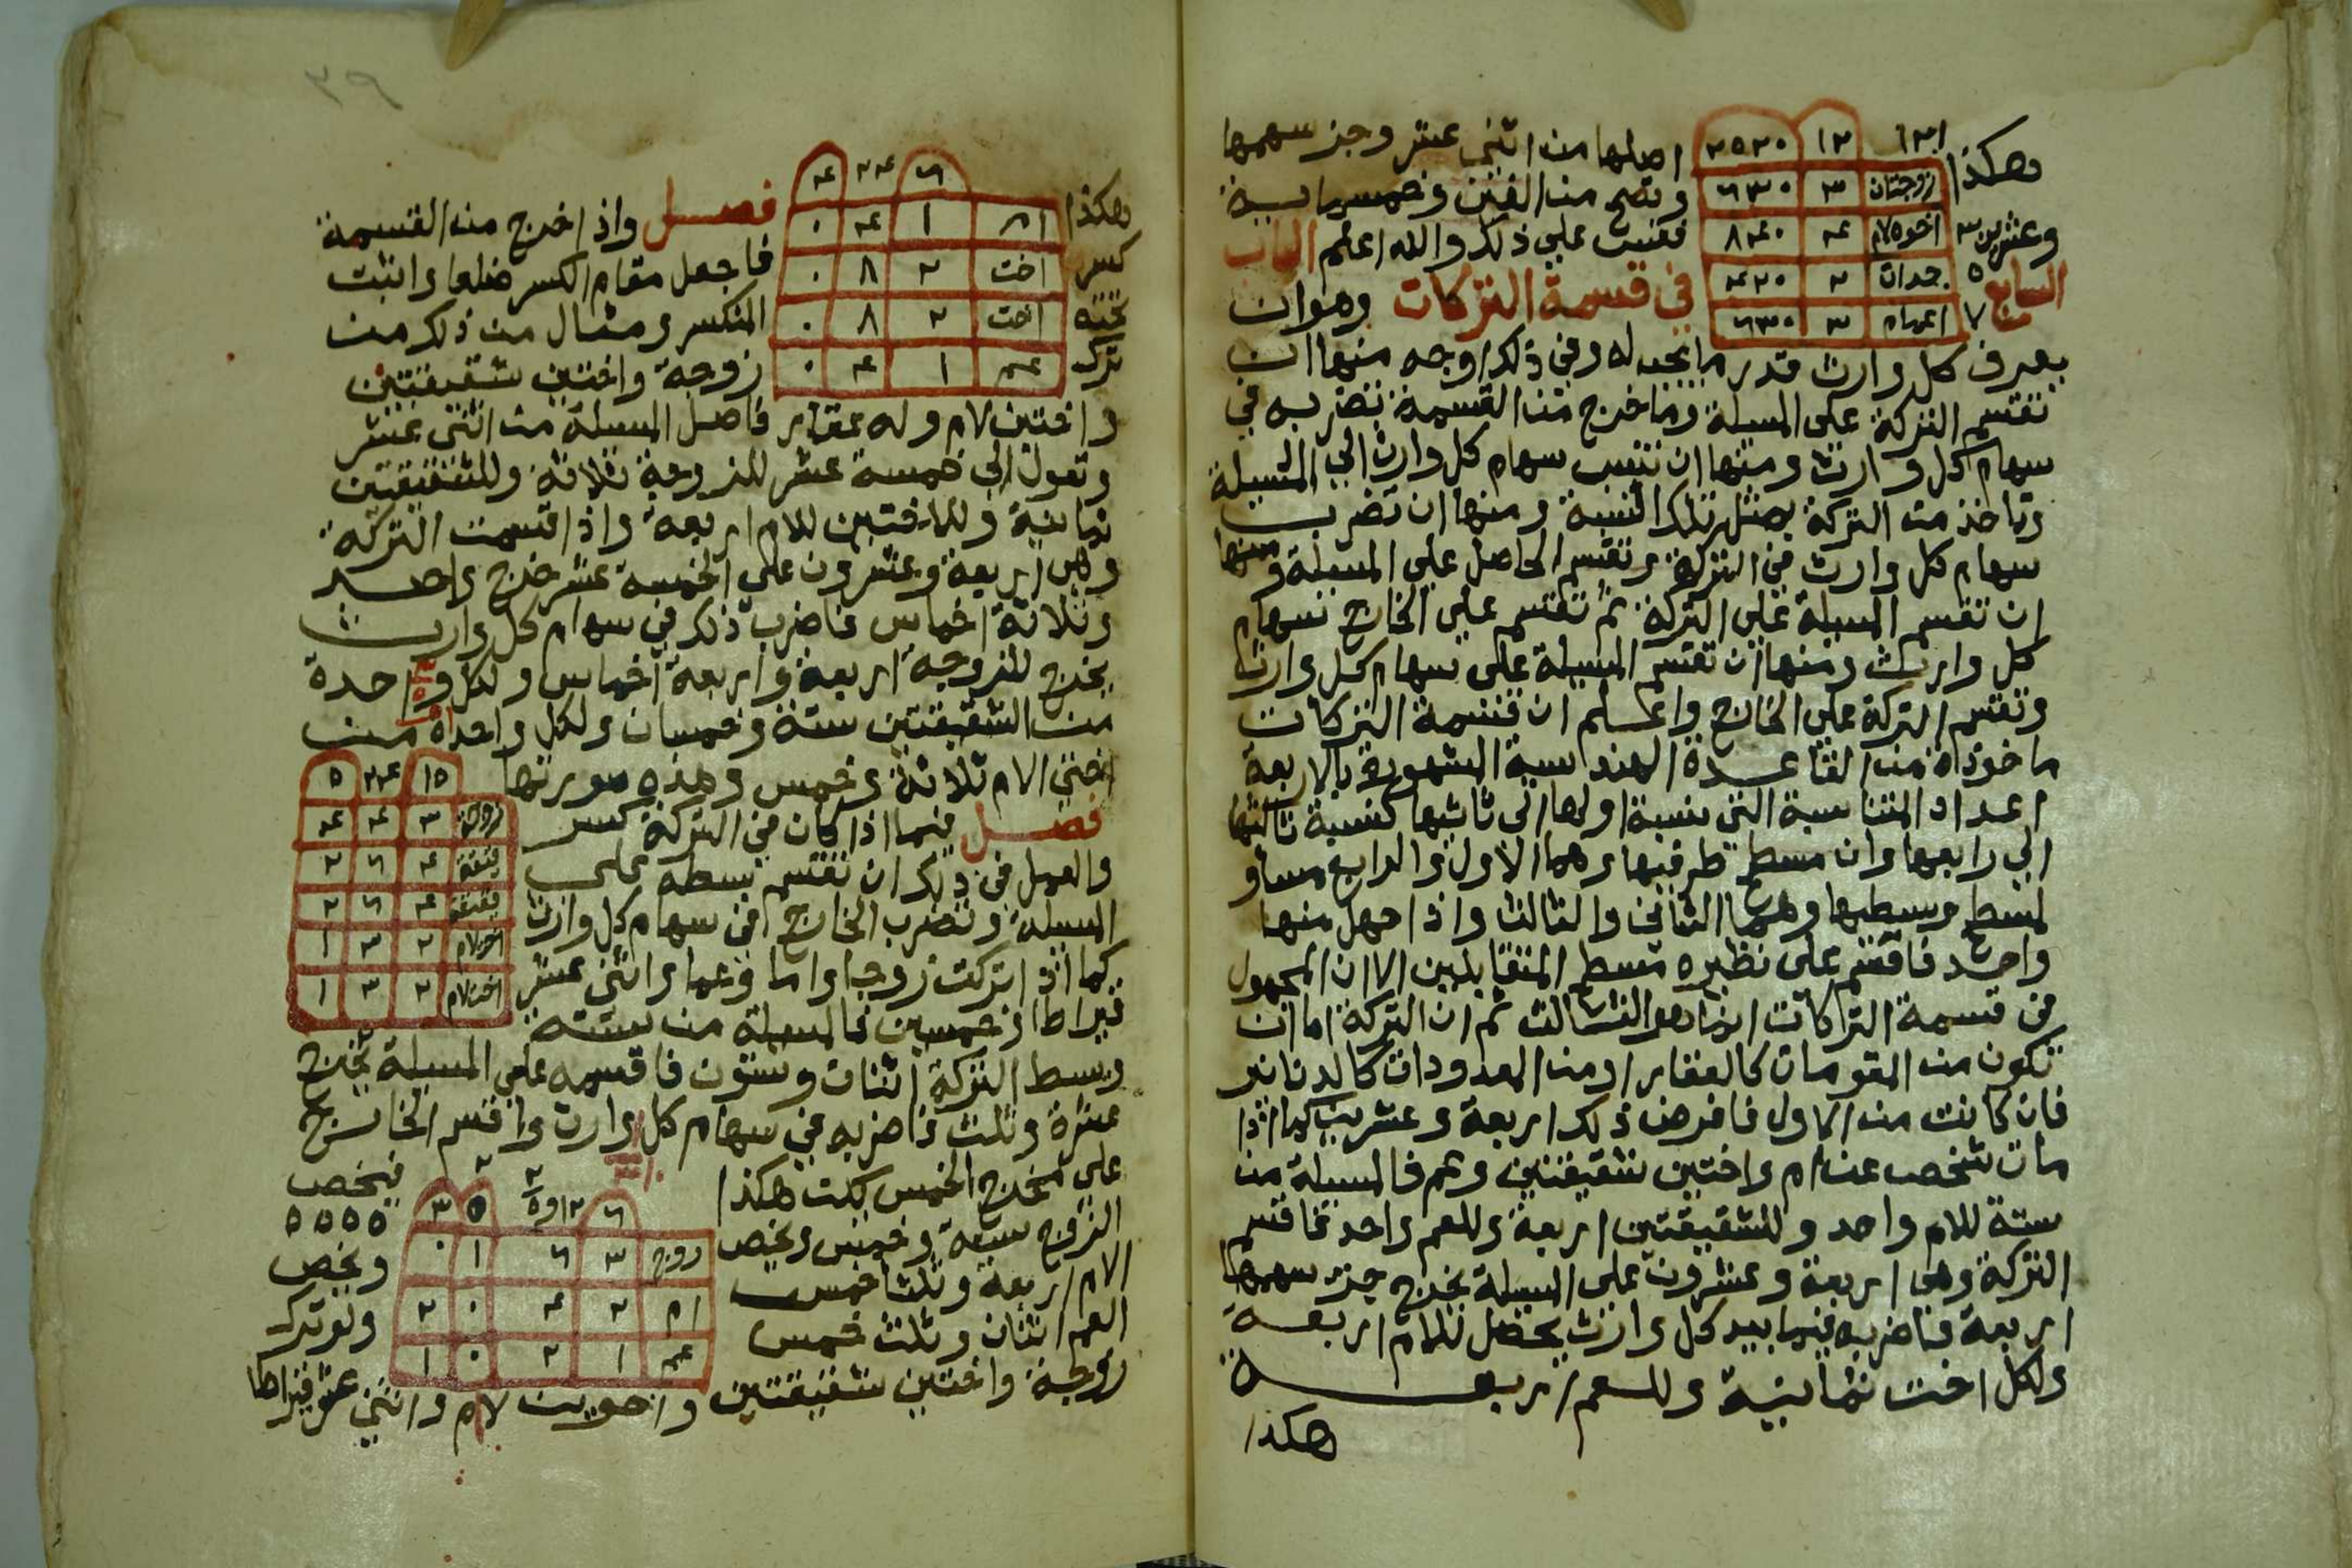 هكذا ٢١٠ ١٢ ٢٥٢٠ اصلها من اثني عشر وجز سهمها
زوجتان ٣ ٦٣٠ وتصح من الفين وخمسماية
وعشرين ٣ اخوه لام ٤ ٨٤٠ فقس علي ذلك والله اعلم الباب
السابع ٥ جدات ٢ ٤٢٠ في قسمة التركات وهو ان
٧ اعمام ٣ ٦٣٠
يعرف كل وارث قدر ما يخصه له وفي ذلك اوجه منها ان
تقسم التركة على المسيلة وما خرج من القسمة تضربه في
سهام كل وارث ومنها ان تنسب سهام كل وارث الي المسيلة
وتاخذ من التركة بمثل تلك النسبة ومنها ان تضرب
سهام كل وارث في التركة وتقسم الحاصل على المسيلة ومنها
ان تقسم المسيلة على التركة ثم تقسم علي الخارج سهام
كل وارث ومنها ان تقسم المسيلة على سهام كل وارث
وتقسم التركة علي الخارج واعلم ان قسمة التركات
ماخوذة من القاعدة الهندسية المشهورة بالاربعة
اعداد المتناسبة التي نسبة اولها الى ثانيها كنسبة ثالثها
الي رابعها وان مسطح طرفيها وهما الاول والرابع مساو
لمسطح وسطيها وهما الثاني والثالث واذا جهل منها
واحد فاقسم على نظيره مسطح المتقابلين الا ان المجهول
في قسمة التركات ابدا هو الثالث ثم ان التركة اما ان
تكون من المقومات كالعقار او من المعدودات كالدنانير
فان كانت من الاول فافرض ذلك اربعة وعشرين كما اذا
مات شخص عن ام واختين شقيقتين وعم فالمسيلة من
ستة للام واحد وللشقيقتين اربعة وللعم واحد فاقسم
التركة وهي اربعة وعشرون على المسيلة يخرج جز سهمها
اربعة فاضربه فيما بيد كل وارث يحصل للام اربعة
ولكل اخت ثمانية وللعم اربعة
هكذا
٣٩
هكذا ٦ ٢٤ ٤ فصل واذا خرج من القسمة
ام ١ ٤ ٠
كسر اخت ٢ ٨ ٠ فاجعل مقام الكسر ضلعا واثبت
تحته اخت ٢ ٨ ٠ المنكسر ومثال من ذلك من
ترك عم ١ ٤ ٠ زوجة واختين شقيقتين
واختين لام وله عقار فاصل المسيلة من اثني عشر
وتعول الى خمسة عشر للزوجة ثلاثة وللشقيقتين
ثمانية وللاختين للام اربعة واذا قسمت التركة
وهي اربعة وعشرون على الخمسة عشر خرج واحد
وثلاثة اخماس فاضرب ذلك في سهام كل وارث
يخرج للزوجة اربعة واربعة اخماس ولكل واحدة
من الشقيقتين ستة وخمسان ولكل واحدة من
اختي الام ثلاثة وخمس وهذه صورتها ١٥ ٢٤ ٥
فصل فيما اذا كان في التركة كسر زوجة ٣ ٤ ٤
والعمل في ذلك ان تقسم بسطه على شقيقة ٤ ٦ ٢
المسيلة وتضرب الخارج في سهام كل وارث شقيقة ٤ ٦ ٢
كما اذا تركت زوجا واما وعما واثني عشر اخت لام ٢ ٣ ١
قيراطا وخمسين فالمسيلة من ستة اخت لام ٢ ٣ ١
وبسط التركة اثنان وستون فاقسمه على المسيلة يخرج
عشرة وثلث فاضربه في سهام كل وارث واقسم الخارج
على مخرج الخمس هكذا فيخص
٦ ١٢ و ٥ ٥ ٣
الزوج ستة وخمس ويخص زوج ٣ ٦ ١ ٠
الام اربعة وثلثا خمس ام ٢ ٤ ٠ ٢ ويخص
العم اثنان وثلث خمس عم ١ ٢ ٠ ١ ولو ترك
زوجة واختين شقيقتين واخوين لام واثني عشر قيراطا